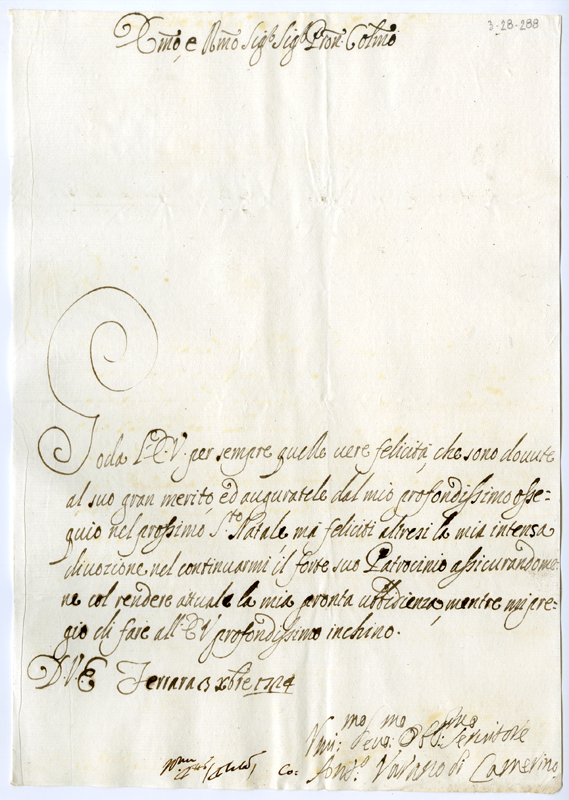 3-28-288
Emo, e Rmo Sigr. Sigr. Pron. Colmo
Goda l'E.V. per sempre quelle vere felicità, che sono dovute
al suo gran merito ed auguratele dal mio profondissimo osse=
quio nel prossimo Sto Natale ma feliciti altresi la mia intensa
divozione nel continuarmi il forte suo Patrocinio assicurandome=
ne col rendere attuale la mia pronta ubbidienza, mentre mi pre=
gio di fare all'E.V. profondissimo inchino.
D.V.E. Ferrara 13 xbre 1724
Vmi:mo Devo:mo Obb:mo Servitore
Co: Ando Varano di Camerino